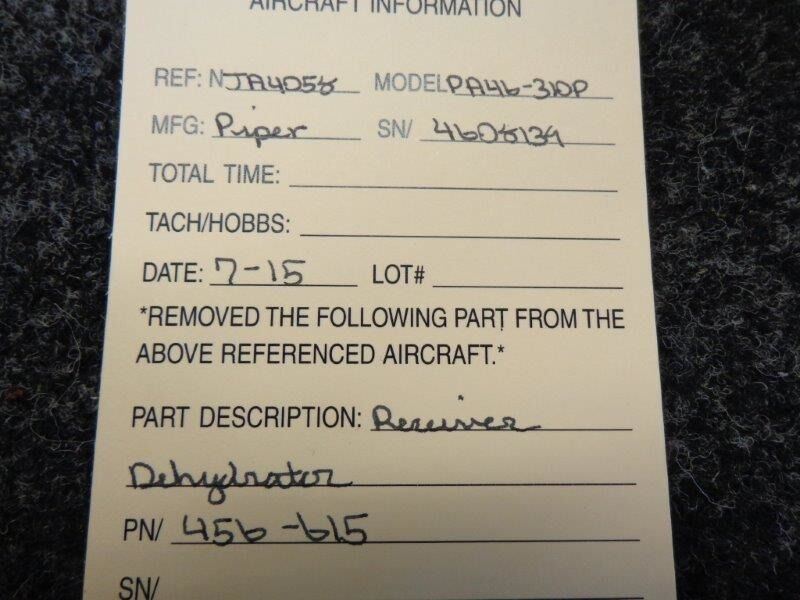 AIRCRAFT INFORMATION
REF: N JA4058 MODEL PA46-310P
MFG: Piper SN/ 4608139
TOTAL TIME:
TACH/HOBBS:
DATE: 7-15 LOT#
*REMOVED THE FOLLOWING PART FROM THE
ABOVE REFERENCED AIRCRAFT.*
PART DESCRIPTION: Receiver
Dehydrator
PN/ 456-615
SN/